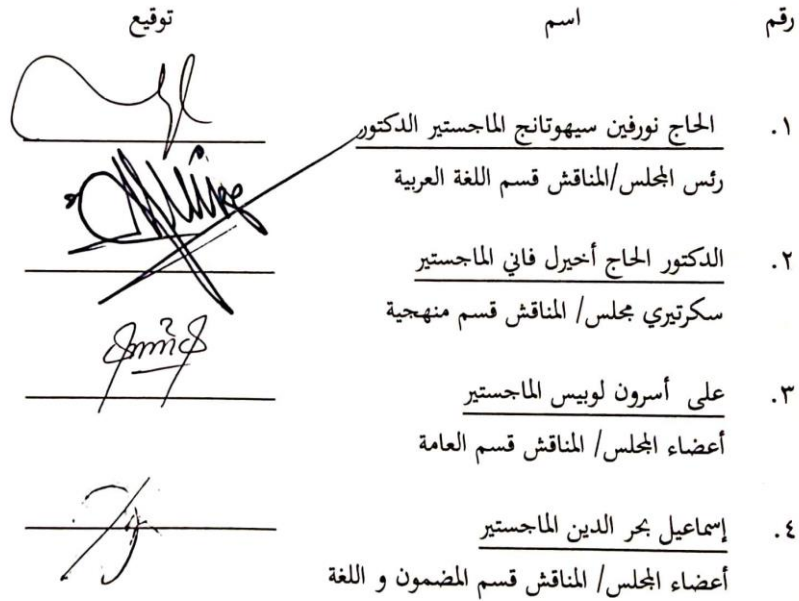 رقم اسم توقيع
١. الحاج نورفين سيهوتانج الماجستير الدكتور
رئس المجلس/المناقش قسم اللغة العربية
٢. الدكتور الحاج أخيرل فاني الماجستير
سكرتيري مجلس/ المناقش قسم منهجية
٣. على أسرون لوبيس الماجستير
أعضاء المجلس/ المناقش قسم العامة
٤. إسماعيل بحر الدين الماجستير
أعضاء المجلس/ المناقش قسم المضمون و اللغة